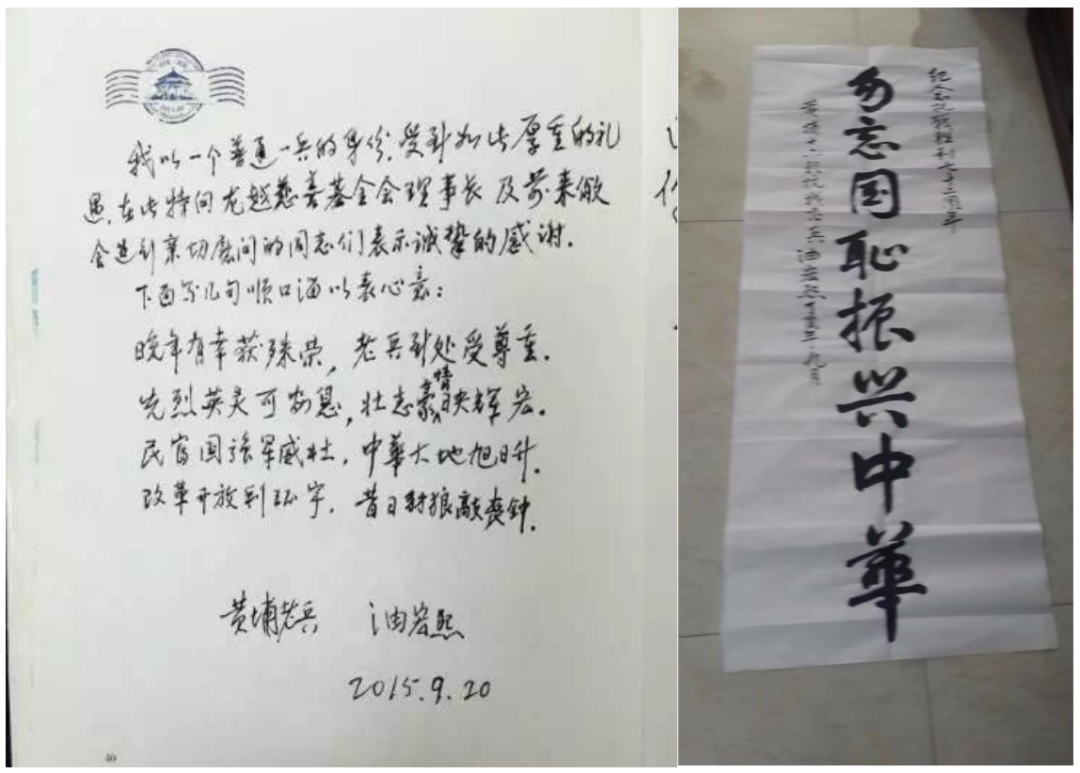 我以一个普通一兵的身份,受到如此厚重的礼
遇,在此特向龙越慈善基金会理事长及前来
亲切慰问的同志们表示诚挚的感谢.
下面写几句顺口溜以表心意:
晚年有幸获殊荣,老兵到处受尊重.
先烈英灵可安息,壮志豪情映辉宏.
民富国强军威壮,中华大地旭日升.
改革开放到环宇,昔日豺狼敲丧钟.
黄埔老兵 油宏熙
2015.9.20
40
纪念抗战胜利六十二周年
勿忘国耻振兴中華
黄埔十六期抗战老兵油宏熙